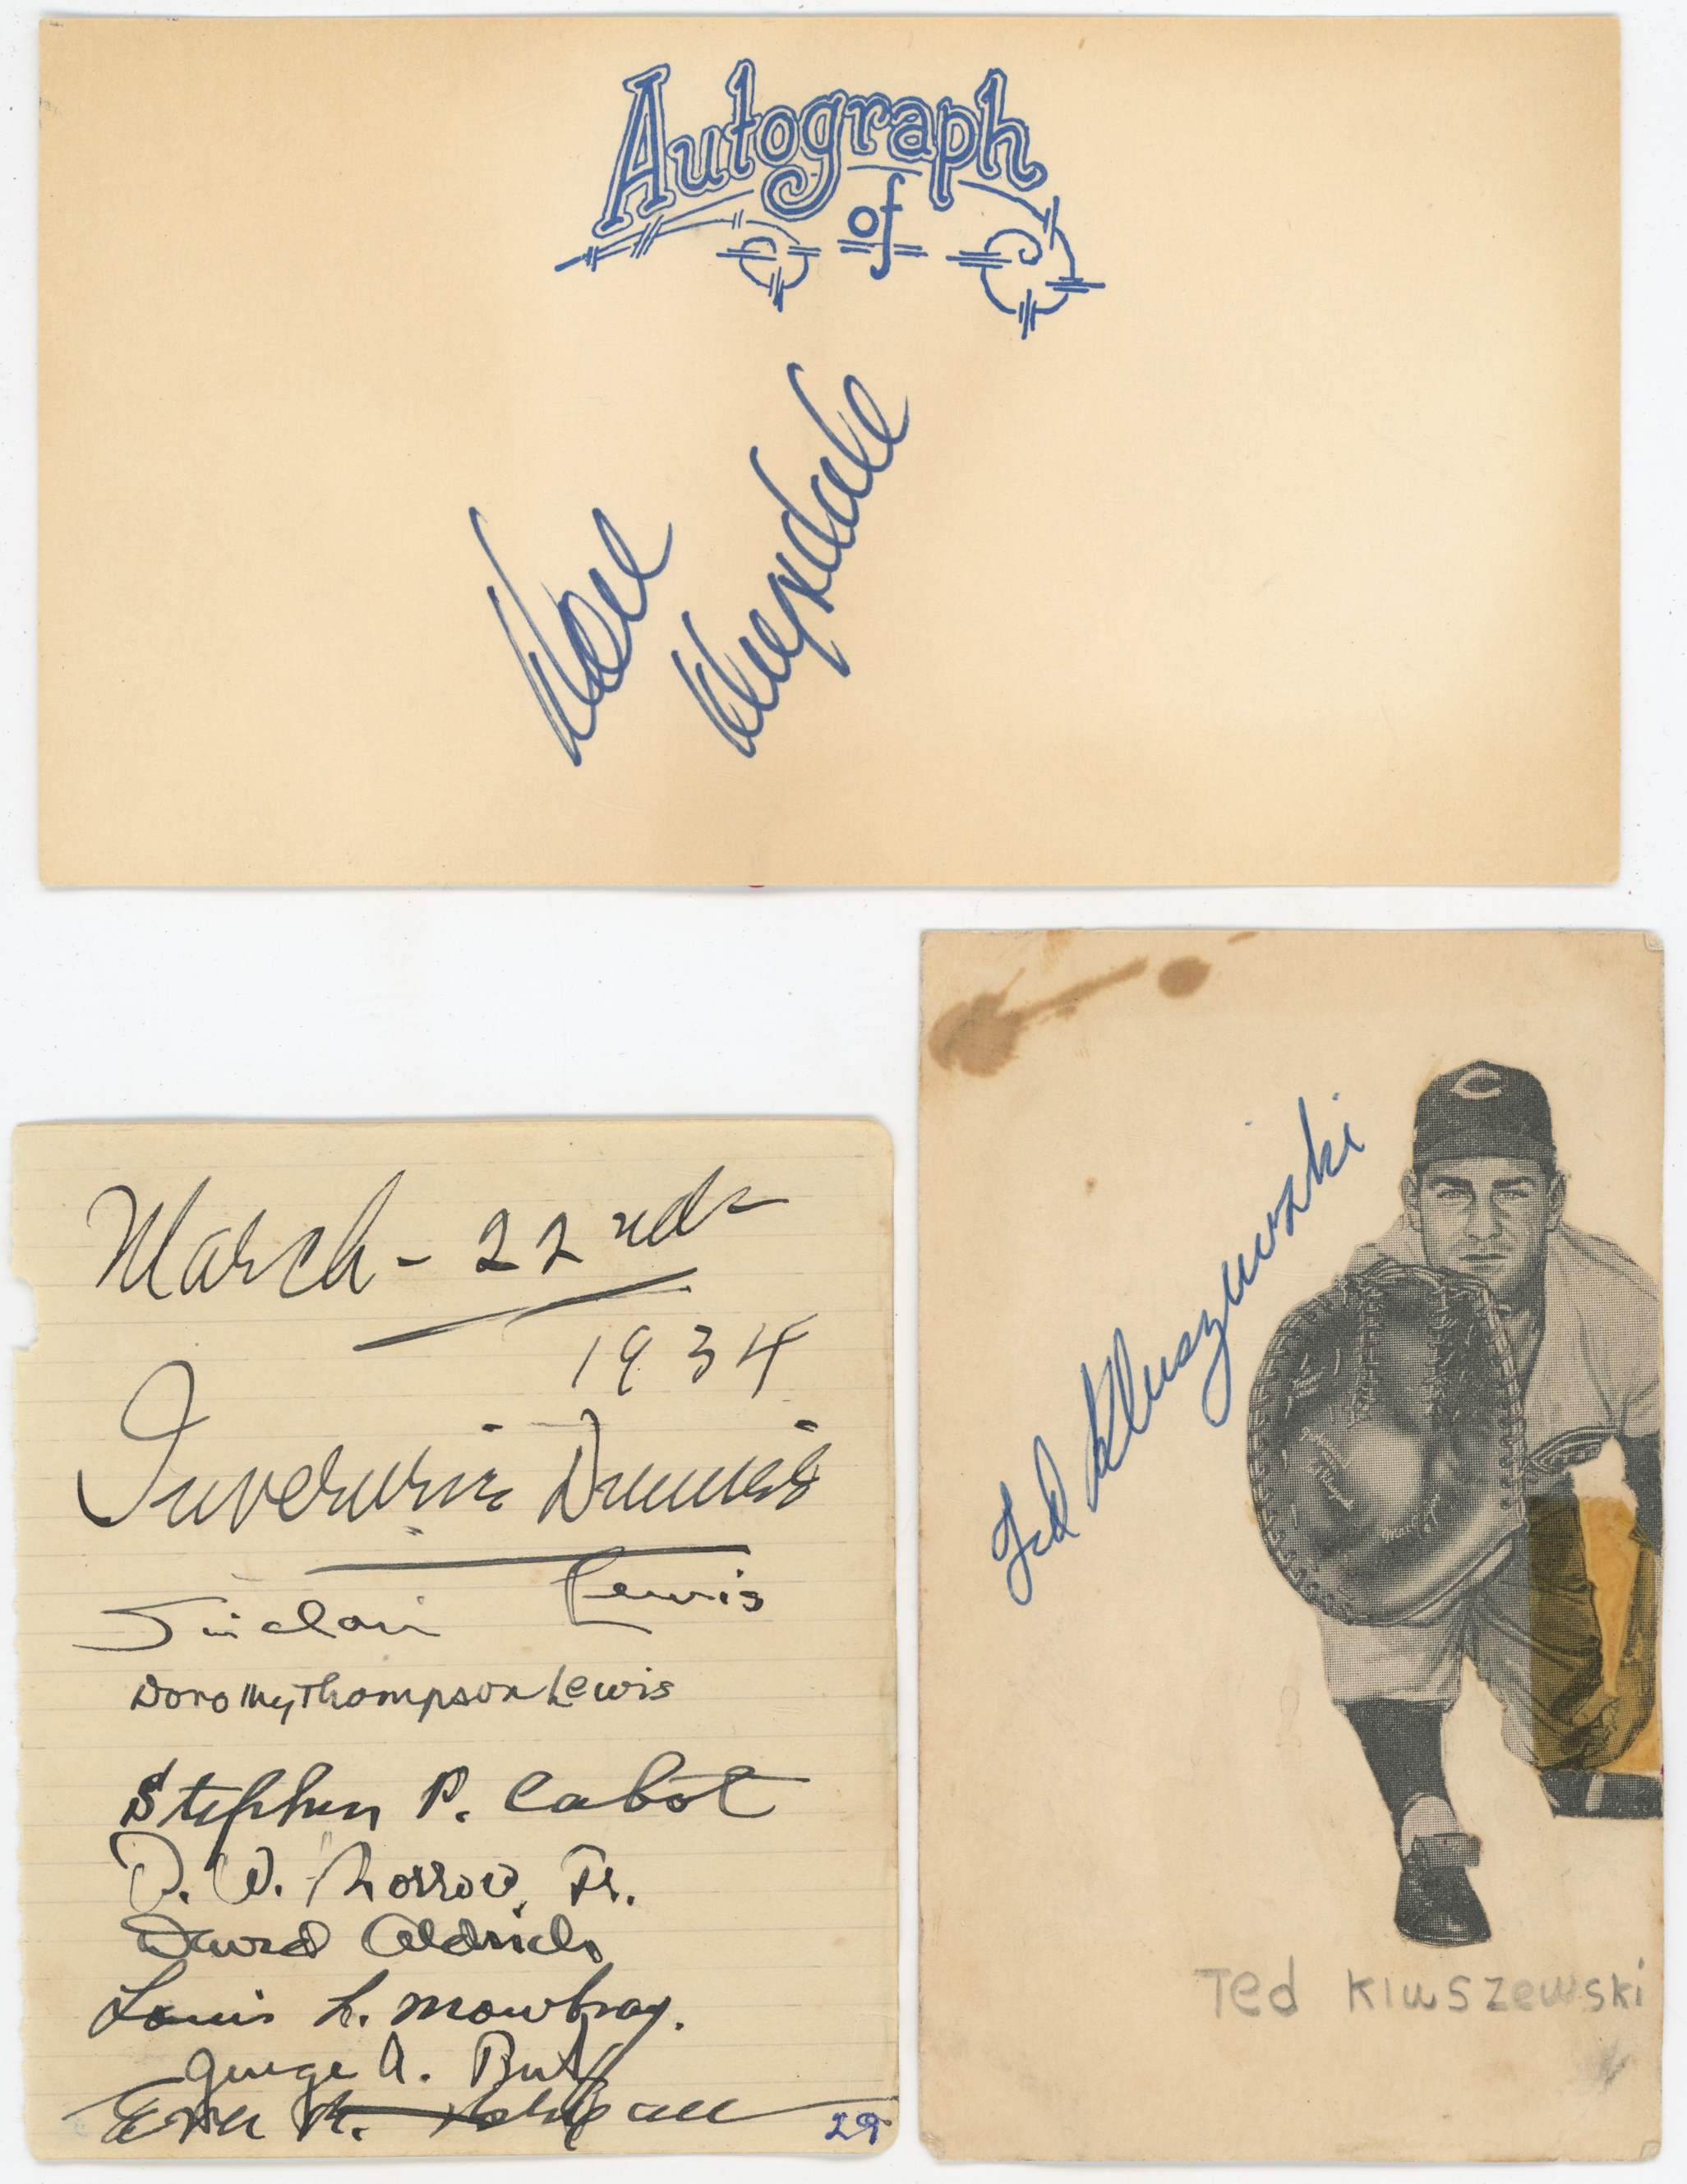 Autograph
of
Don
Drysdale
March - 22nd
1934
Inverurie
Sinclair Lewis
Dorothy Thompson Lewis
Stephen P. Cabot
D. W. Morrow, Jr.
David Aldrich
Louis L. Mowbray.
George A. Butz
29
C
Ted Kluszewski
Ted Kluszewski